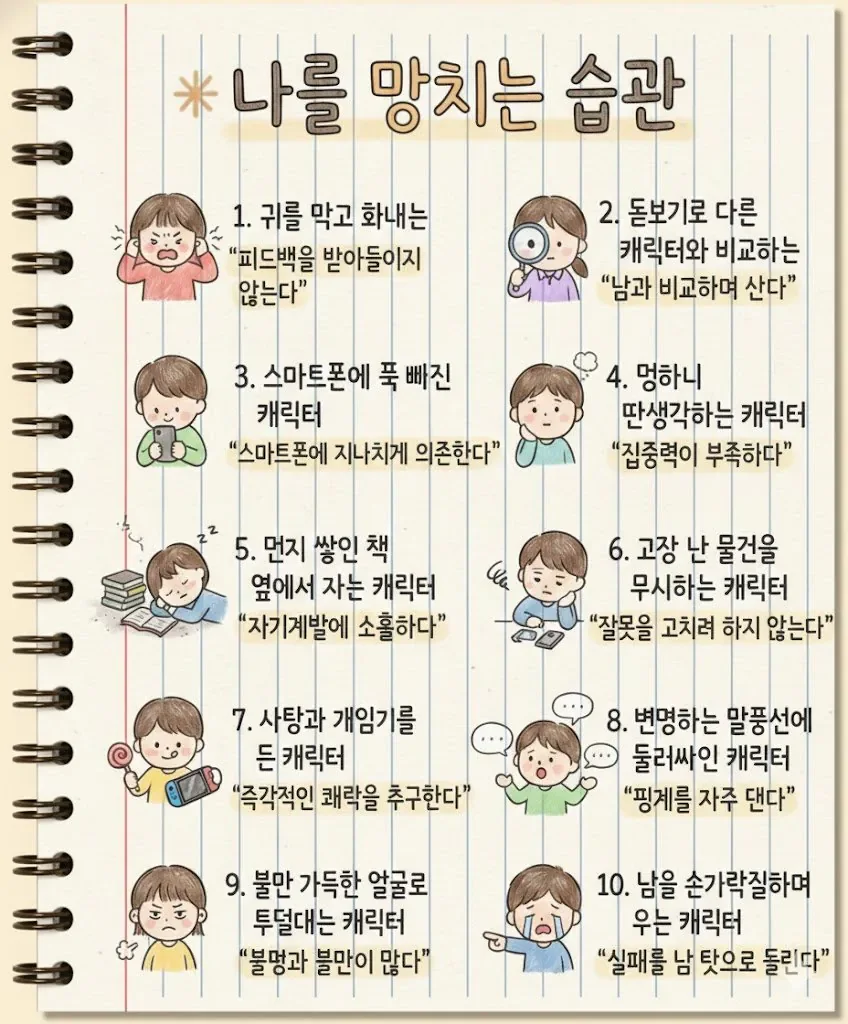 나를 망치는 습관
1. 귀를 막고 화내는
“피드백을 받아들이지
않는다”
2. 돋보기로 다른
캐릭터와 비교하는
“남과 비교하며 산다”
3. 스마트폰에 푹 빠진
캐릭터
“스마트폰에 지나치게 의존한다”
4. 멍하니
딴생각하는 캐릭터
“집중력이 부족하다”
5. 먼지 쌓인 책
옆에서 자는 캐릭터
“자기계발에 소홀하다”
zz
6. 고장 난 물건을
무시하는 캐릭터
“잘못을 고치려 하지 않는다”
7. 사탕과 개임기를
든 캐릭터
“즉각적인 쾌락을 추구한다”
8. 변명하는 말풍선에
둘러싸인 캐릭터
“핑계를 자주 댄다”
... ... ...
9. 불만 가득한 얼굴로
투덜대는 캐릭터
“불멍과 불만이 많다”
10. 남을 손가락질하며
우는 캐릭터
“실패를 남 탓으로 돌린다”